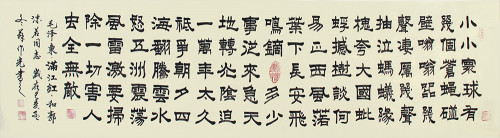 小小寰球有
幾個蒼蠅碰
壁嗡嗡叫幾
聲凄厲幾聲
抽泣螞蟻緣
槐夸大國蚍
蜉撼樹談何
易正西風落
葉下長安飛
鳴鏑多少
事從來急天
地轉光陰迫
一萬年太久
祇爭朝夕四
海翻騰雲水
怒五洲震蕩
風雷激要掃
除一切害人
虫全無敵
毛澤東滿江紅和郭
沫若同志